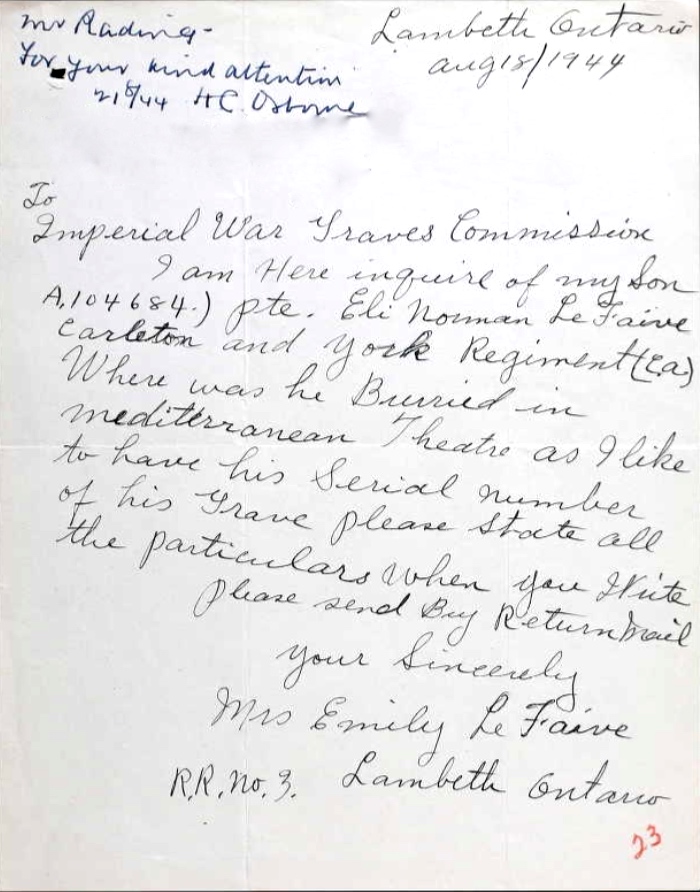 Mr Rading-
For your kind attention
21/8/44 H C. Osborne
Lambeth Ontario
aug 18/1944
To
Imperial War Graves Commission
I am Here inquire of my son
A.104684.) pte. Eli Norman Le Faive
Carleton and York Regiment (C.a)
Where was he Burried in
mediterranean Theatre as I like
to have his Serial number
of his Grave please state all
the particulars when you Write
please send By Return mail
your Sincerely
Mrs Emily Le Faive
R.R. No. 3. Lambeth Ontario
23